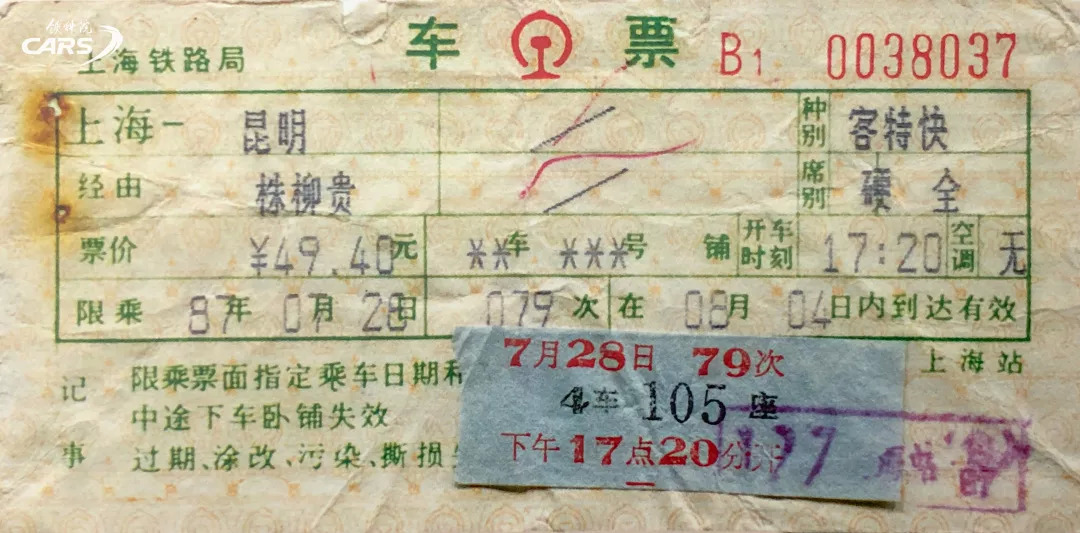 铁科院
CARS
上海铁路局
车 票 B1 0038037
上海— 昆明 种别 客特快
经由 株柳贵 席别 硬 全
票价 ¥49.40元 **车 ***号 铺 开车时刻 17:20 空调 无
限乘 87年 07月 28日 079次 在 08月 04日内到达有效
上海站
7月28日 79次
4车 105座
下午17点20分开
记事
限乘票面指定乘车日期和
中途下车卧铺失效
过期、涂改、污染、撕损